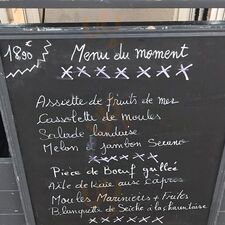 18,90
Menu du moment
xxxxxxx
Assiette de fruits de mer
Cassolette de moules
Salade landaise
Melon & jambon Serrano
xxxxxxx
Pièce de Boeuf grillée
Aile de Raie aux câpres
Moules Marinières + Frites
Blanquette de Seiche à la charentaise
xxxxxxx